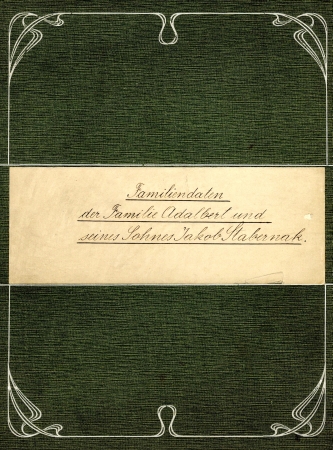 Familiendaten
der Familie Adalbert und
seines Sohnes Jakob Stabernak.